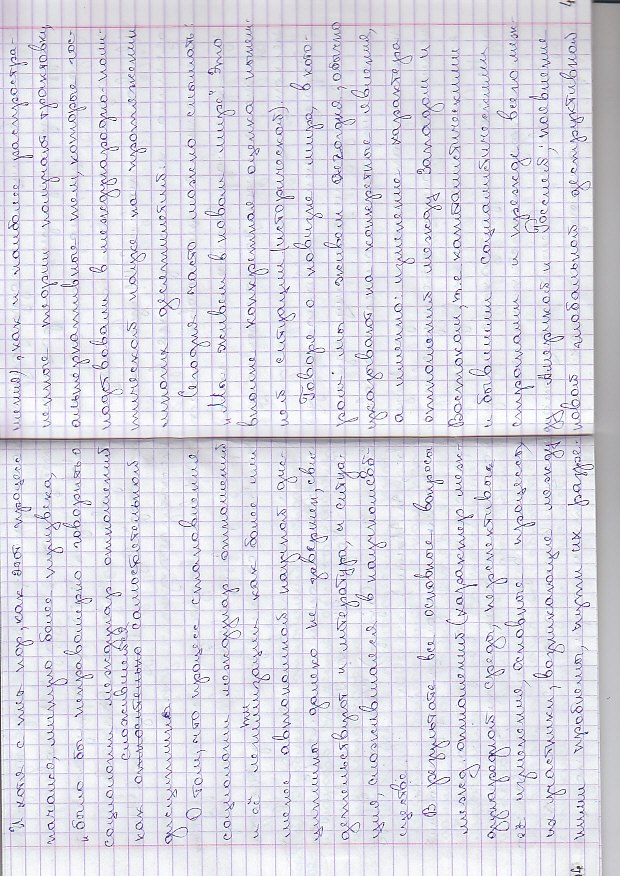 И хотя с тех пор, как этот процесс
начался, минуло более полувека,
"было бы неправомерно говорить о
социологии междунар. отношений
сложившейся
как относительно самостоятельной
дисциплине
О том, что процесс становления
социологии междунар отношений
и её легитимации как более или
менее автономной научной дис-
циплины далеко не завершен, сви-
детельствует и литература, и ситуа-
ция, сложившаяся в научном сооб-
ществе.
В результате все основные вопросы
межд отношений (характер меж-
дународной среды, перспективы
её изменения, основные процессы,
их участники, возникающие между
ними проблемы, пути их разре-
шения), как и наиболее распростра-
ненные теории получают трактовки,
альтернативные тем, которые гос-
подствовали в международно-поли-
тической науке на протяжении
многих десятилетий.
Сегодня часто можно слышать:
"Мы живем в новом мире". Это
вполне конкретная оценка нынеш-
ней ситуации (исторической)
Говоря о новизне мира, в кото-
ром мы живем сегодня, обычно
указывают на конкретные явления,
а именно: изменение характера
отношений между Западом и
Востоком, т.е капиталистическими
и бывшими социалистическими
странами и прежде всего меж-
ду Америкой и Россией; появление
новой глобальной деструктивной
4